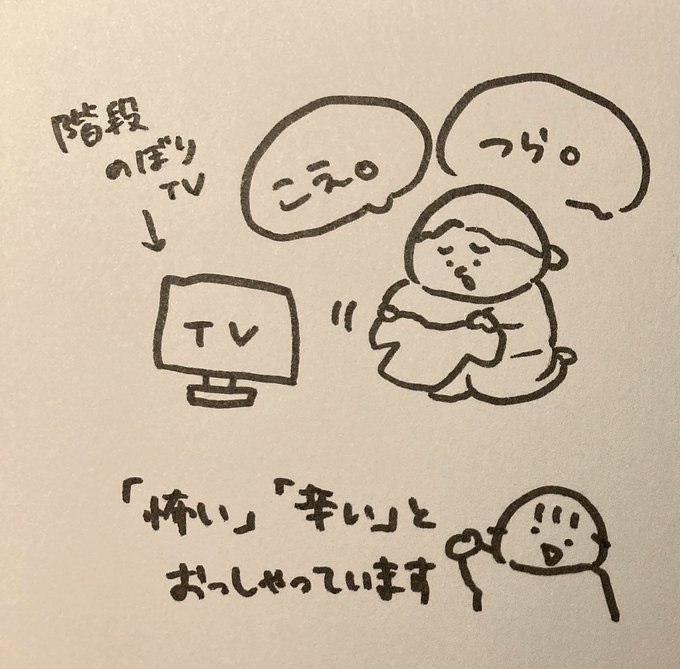 階段
のぼり
TV
こえ。
つら。
TV
「怖い」「辛い」と
おっしゃっています